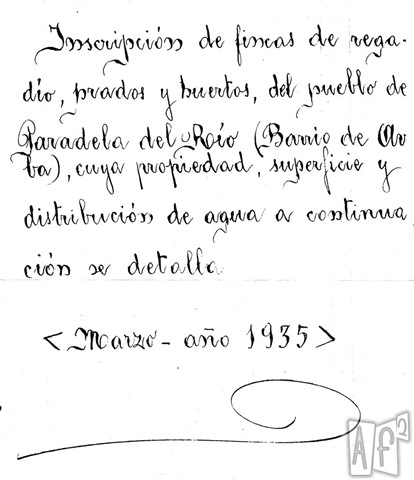 Inscripción de fincas de rega-
dío, prados y huertos, del pueblo de
Paradela del Río (Barrio de Ar
ba), cuya propiedad, superficie y
distribución de agua a continua
ción se detalla
< Marzo - año 1935 >
Af